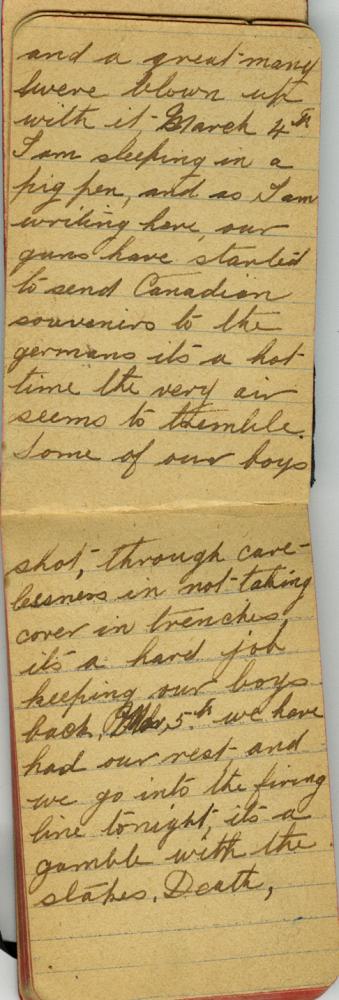 and a great many
were blown up
with it March 4th
I am sleeping in a
pig pen, and as I am
writing here, our
guns have started
to send Canadian
souvenirs to the
germans its a hot
time the very air
seems to themble.
Some of our boys
shot, through care-
lessness in not taking
cover in trenches,
it's a hard job
keeping our boys
back. Mar, 5.th we have
had our rest, and
we go into the firing
line tonight, its a
gamble with the
stakes. Death,